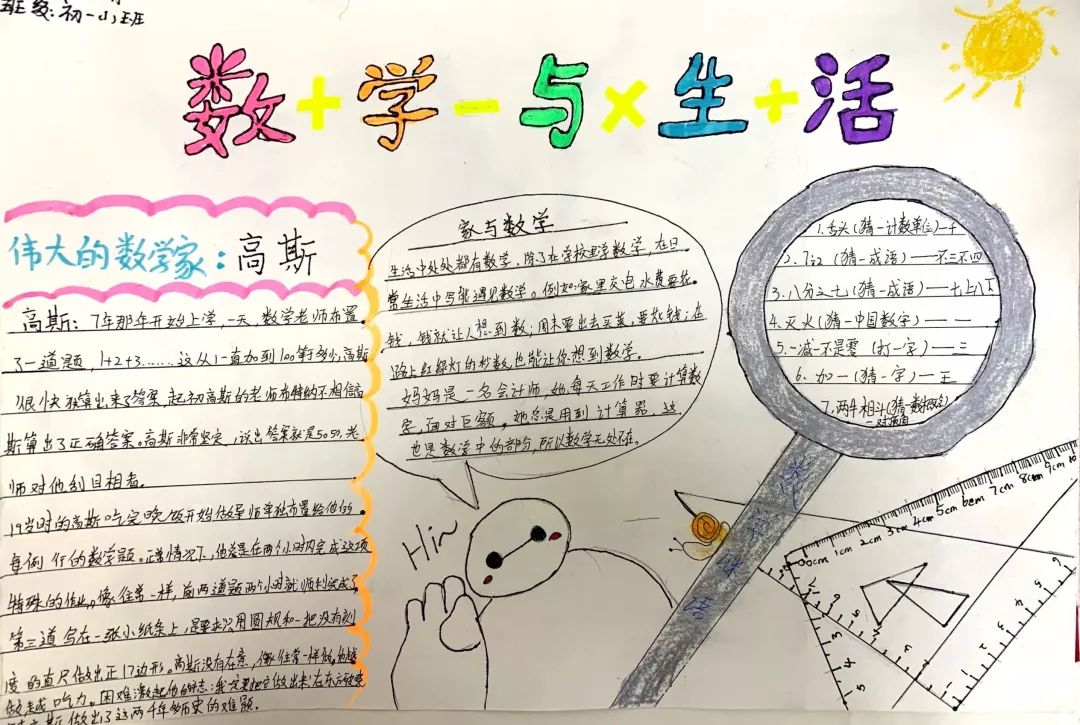 班级:初一小班
数+学-与×生+活
伟大的数学家:高斯
高斯:7年那年开始上学,一天,数学老师布置
了一道题,1+2+3……这从1一直加到100等多少,高斯
很快就算出来了答案,起初高斯的老师布特纳不相信高
斯算出了正确答案。高斯非常坚定,说出答案就是5050,老
师对他刮目相看。
19岁时的高斯吃完晚饭开始做导师单独布置给他的
每例行的数学题。正常情况下,他总是在两个小时内完成这项
特殊的作业。像往常一样,前两道题两个小时就顺利完成了
第三道写在一张小纸条上,是要求只用圆规和一把没有刻
度的直尺做出正17边形。高斯没有在意,像往常一样做,
做越吃力。困难激起他的斗志:我一定要把它做出来!
高斯做出了这两千年多历史的难题。
家与数学
生活中处处都有数学,除了在学校里学数学,在日
常生活中写能遇见数学。例如:家里交电水费要花
钱,钱就让人想到数;周末要出去买菜,要花钱;在
路上红绿灯的秒数,也能让你想到数学。
妈妈是一名会计师,她每天工作时要计算数
面对巨额,她总是用到计算器,这
也是数学中的部分,所以数学无处不在。
1.舌头(猜一计数单位)—千
2.(猜一成语)——不三不四
3.八分之七(猜一成语)——七上八下
4.灭火(猜一中国数字)——一
5.一减一不是零(打一字)——三
6.加一(猜一字)—王
7.两牛相斗(猜数学概念)
—对顶角
数学谜语
Hi~
0cm 1cm 2cm 3cm 4cm 5cm 6cm 7cm 8cm 9cm 10